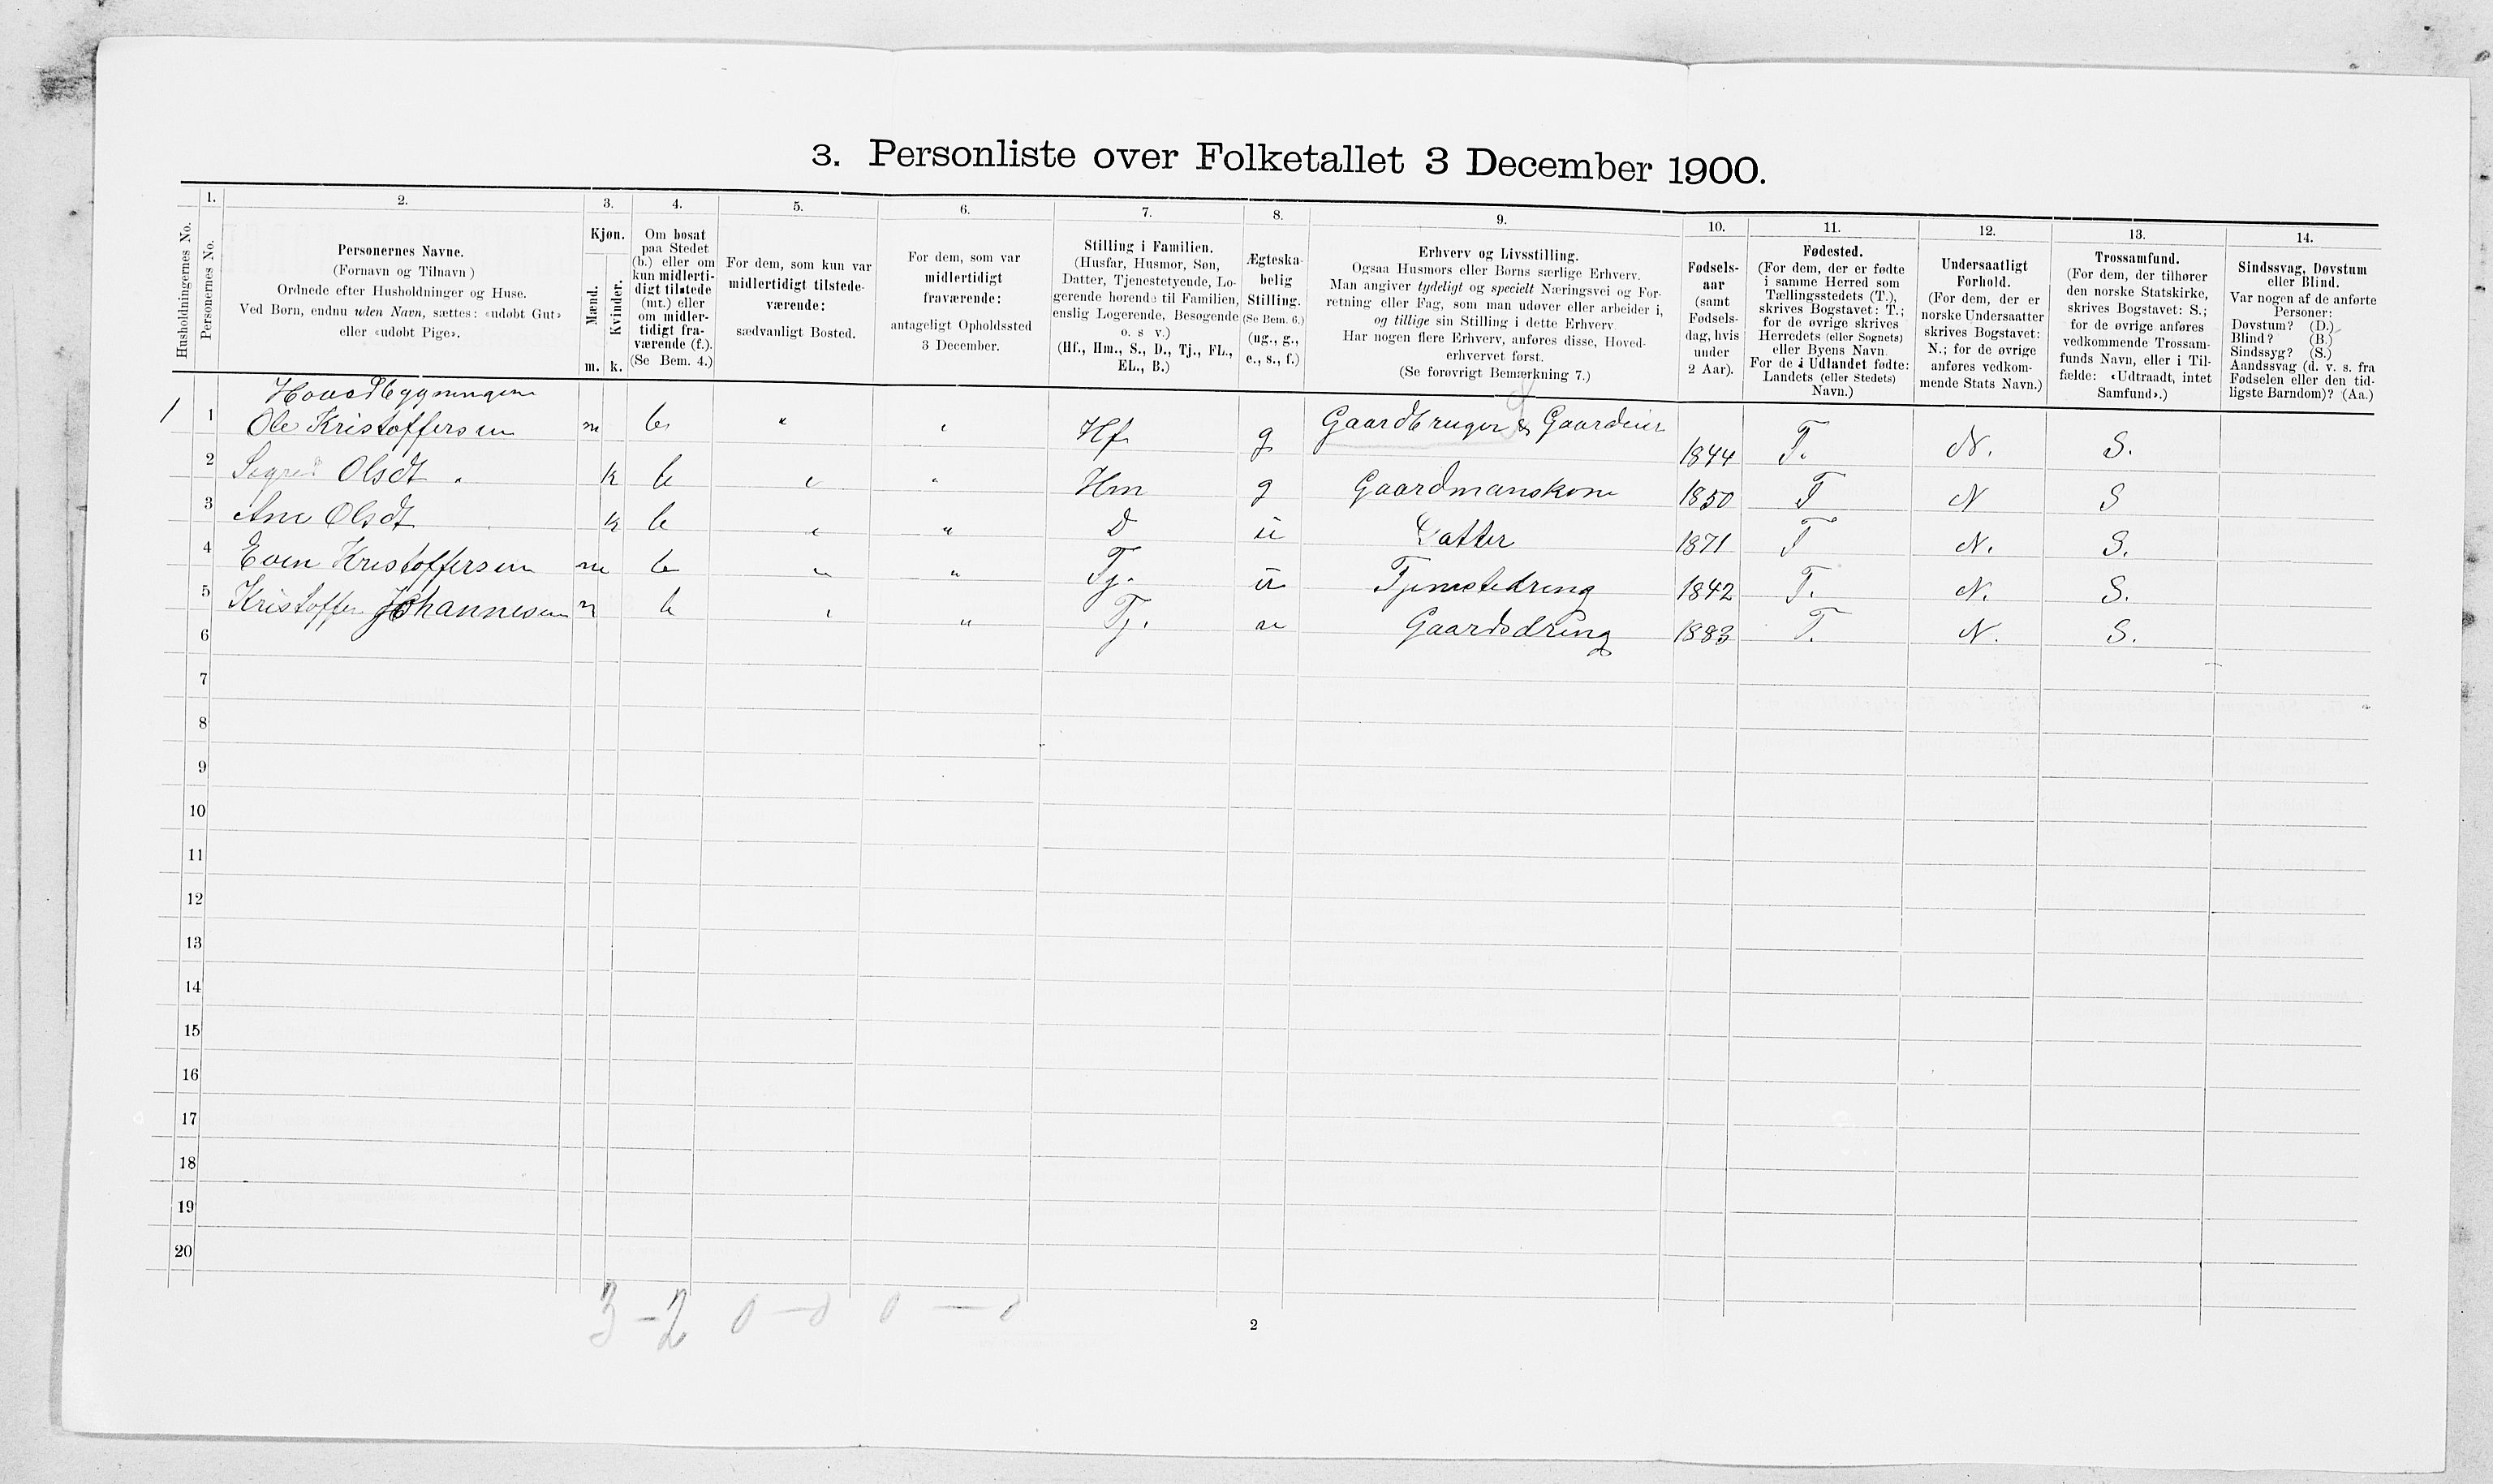 3. Personliste over Folketallet 3 December 1900.
Husholdningernes No.
1.
Personernes No.
2.
Personernes Navne.
(Fornavn og Tilnavn)
Ordnede efter Husholdninger og Huse.
Ved Børn, endnu uden Navn, sættes: «udøbt Gut»
eller «udøbt Pige».
3.
Kjøn.
Mænd.
Kvinder.
m. k.
4.
Om bosat
paa Stedet
(b.) eller om
kun midlerti-
digt tilstede
(mt.) eller
om midler-
tidigt fra-
værende (f.).
(Se Bem. 4.)
5.
For dem, som kun var
midlertidigt tilstede-
værende:
sædvanligt Bosted.
6.
For dem, som var
midlertidigt
fraværende:
antageligt Opholdssted
3 December.
7.
Stilling i Familien.
(Husfar, Husmor, Søn,
Datter, Tjenestetyende, Lo-
gerende hørende til Familien,
enslig Logerende, Besøgende
o. s. v.)
(Hf., Hm., S., D., Tj., FL.,
EL., B.)
8.
Ægteska-
belig
Stilling.
(Se Bem. 6.)
(ug., g.,
e., s., f.)
9.
Erhverv og Livsstilling.
Ogsaa Husmors eller Børns særlige Erhverv.
Man angiver tydeligt og specielt Næringsvei og For-
retning eller Fag, som man udøver eller arbeider i,
og tillige sin Stilling i dette Erhverv.
Har nogen flere Erhverv, anføres disse, Hoved-
erhvervet først.
(Se forøvrigt Bemærkning 7.)
10.
Fødsels-
aar
(samt
Fødsels-
dag, hvis
under
2 Aar).
11.
Fødested.
(For dem, der er fødte
i samme Herred som
Tællingsstedets (T.),
skrives Bogstavet: T.;
for de øvrige skrives
Herredets (eller Sognets)
eller Byens Navn.
For de i Udlandet fødte:
Landets (eller Stedets)
Navn.)
12.
Undersaatligt
Forhold.
(For dem, der er
norske Undersaatter
skrives Bogstavet:
N.; for de øvrige
anføres vedkom-
mende Stats Navn.)
13.
Trossamfund.
(For dem, der tilhører
den norske Statskirke,
skrives Bogstavet: S.;
for de øvrige anføres
vedkommende Trossam-
funds Navn, eller i Til-
fælde: «Udtraadt, intet
Samfund».)
14.
Sindssvag, Døvstum
eller Blind.
Var nogen af de anførte
Personer:
Døvstum? (D.)
Blind? (B.)
Sindssyg? (S.)
Aandssvag (d. v. s. fra
Fødselen eller den tid-
ligste Barndom)? (Aa.)
Hovedbygningen
1 1 Ole Kristoffersen m b " " Hf g Gaardbruger & Gaardeier 1844 T. N. S.
2 Sigrid Olsdt " k b " " Hm g Gaardmanskone 1850 T N S
3 Ane Olsdt k b " " D u Datter 1871 T N. S.
4 Even Kristoffersen m b " " Tj. u Tjenestedreng 1842 T. N. S.
5 Kristoffer Johannesen m b " " Tj. u Gaardsdreng 1883 T. N. S.
6
7
8
9
10
11
12
13
14
15
16
17
18
19
20
3 - 2 0 - 0 0 - 0
2